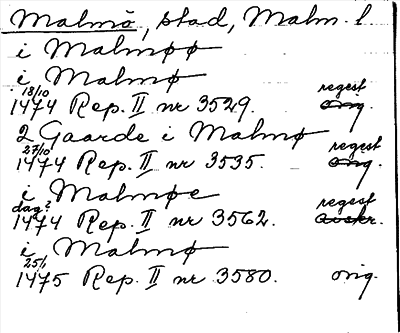 Malmö, stad, Malm. l.
i Malmøø
i Malmø
18/10 regest
1474 Rep. II nr 3529. orig.
2 Gaarde i Malmø
27/10 regest
1474 Rep. II nr 3535. orig.
i Malmøe
dag? regest
1474 Rep. II nr 3562. avskr.
i Malmø
25/1
1475 Rep. II nr 3580. orig.